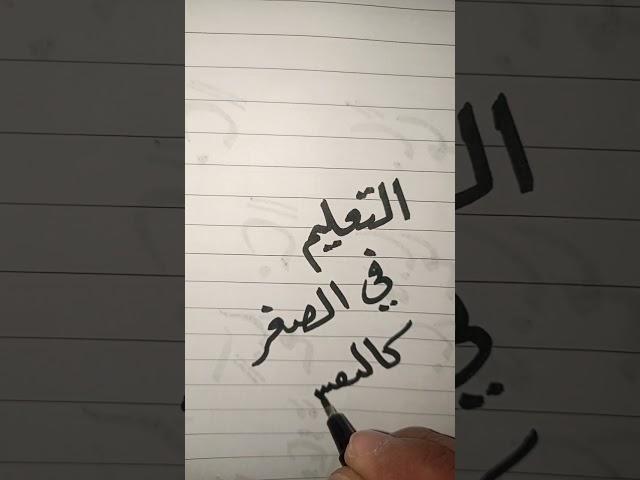 التعليم
في الصغر
كالنقش